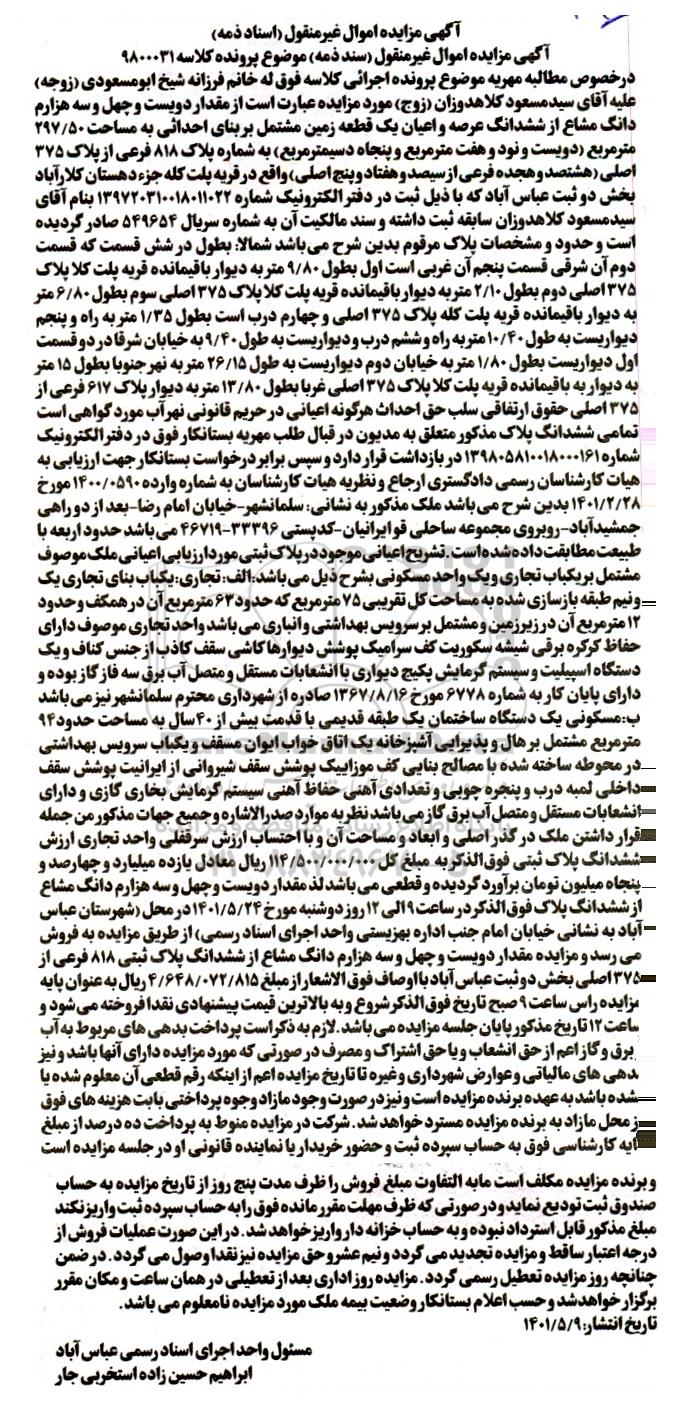 آگهی مزایده اموال غیرمنقول (اسناد ذمه)
آگهی مزایده اموال غیرمنقول (سند ذمه) موضوع پرونده کلاسه ۹۸۰۰۰۳۱
درخصوص مطالبه مهریه موضوع پرونده اجرائی کلاسه فوق له خانم فرزانه شیخ ابومسعودی (زوجه)
علیه آقای سیدمسعود کلاهدوزان (زوج) مورد مزایده عبارت است از مقدار دویست و چهل و سه هزارم
دانگ مشاع از ششدانگ عرصه و اعیان یک قطعه زمین مشتمل بر بنای احداثی به مساحت ۲۹۷/۵۰
مترمربع (دویست و نود و هفت مترمربع و پنجاه دسیمترمربع) به شماره پلاک ۸۱۸ فرعی از پلاک ۳۷۵
اصلی (هشتصد و هجده فرعی از سیصد و هفتاد و پنج اصلی) واقع در قریه پلت کله جزء دهستان کلارآباد
بخش دو ثبت عباس آباد که با ذیل ثبت در دفتر الکترونیک شماره ۱۳۹۷۲۰۳۱۰۰۱۸۰۱۱۰۲۲ بنام آقای
سیدمسعود کلاهدوزان سابقه ثبت داشته و سند مالکیت آن به شماره سریال ۵۴۹۶۵۴ صادر گردیده
است و حدود و مشخصات پلاک مرقوم بدین شرح می باشد شمالا: بطول در شش قسمت که قسمت
دوم آن شرقی قسمت پنجم آن غربی است اول بطول ۹/۸۰ متر به دیوار باقیمانده قریه پلت کلا پلاک
۳۷۵ اصلی دوم بطول ۲/۱۰ متر به دیوار باقیمانده قریه پلت کلا پلاک ۳۷۵ اصلی سوم بطول ۶/۸۰ متر
به دیوار باقیمانده قریه پلت کله پلاک ۳۷۵ اصلی و چهارم درب است بطول ۱/۳۵ متر به راه و پنجم
دیواریست به طول ۱۰/۴۰ متر به راه و ششم درب و دیواریست به طول ۹/۴۰ به خیابان شرقا در دو قسمت
اول دیواریست بطول ۱/۸۰ متر به خیابان دوم دیواریست به طول ۲۶/۱۵ متر به نهر جنوبا بطول ۱۵ متر
به دیوار به باقیمانده قریه پلت کلا پلاک ۳۷۵ اصلی غربا بطول ۱۳/۸۰ متر به دیوار پلاک ۶۱۷ فرعی از
۳۷۵ اصلی حقوق ارتفاقی سلب حق احداث هرگونه اعیانی در حریم قانونی نهر آب مورد گواهی است
تمامی ششدانگ پلاک مذکور متعلق به مدیون در قبال طلب مهریه بستانکار فوق در دفتر الکترونیک
شماره ۱۳۹۸۰۵۸۱۰۰۱۸۰۰۰۱۶۱ در بازداشت قرار دارد و سپس برابر درخواست بستانکار جهت ارزیابی به
هیات کارشناسان رسمی دادگستری ارجاع و نظریه هیات کارشناسان به شماره وارده ۱۴۰۰/۰۵۹۰ مورخ
۱۴۰۱/۲/۲۸ بدین شرح می باشد ملک مذکور به نشانی: سلمانشهر-خیابان امام رضا-بعد از دو راهی
جمشیدآباد-روبروی مجموعه ساحلی قو ایرانیان-کدپستی ۳۳۳۹۶-۴۶۷۱۹ می باشد حدود اربعه با
طبیعت مطابقت داده شده است. تشریح اعیانی موجود در پلاک ثبتی مورد ارزیابی اعیانی ملک موصوف
مشتمل بر یکباب تجاری و یک واحد مسکونی بشرح ذیل می باشد: الف: تجاری: یکباب بنای تجاری یک
و نیم طبقه بازسازی شده به مساحت کل تقریبی ۷۵ مترمربع که حدود ۶۳ مترمربع آن در همکف و حدود
۱۲ مترمربع آن در زیرزمین و مشتمل بر سرویس بهداشتی و انباری می باشد واحد تجاری موصوف دارای
حفاظ کرکره برقی شیشه سکوریت کف سرامیک پوشش دیوارها کاشی سقف کاذب از جنس کناف و یک
دستگاه اسپیلیت و سیستم گرمایش پکیج دیواری با انشعابات مستقل و متصل آب برق سه فاز گاز بوده و
دارای پایان کار به شماره ۶۷۷۸ مورخ ۱۳۶۷/۸/۱۶ صادره از شهرداری محترم سلمانشهر نیز می باشد
ب: مسکونی یک دستگاه ساختمان یک طبقه قدیمی با قدمت بیش از ۴۰ سال به مساحت حدود ۹۴
مترمربع مشتمل بر هال و پذیرایی آشپزخانه یک اتاق خواب ایوان مسقف و یکباب سرویس بهداشتی
در محوطه ساخته شده با مصالح بنایی کف موزاییک پوشش سقف شیروانی از ایرانیت پوشش سقف
داخلی لمبه درب و پنجره چوبی و تعدادی آهنی حفاظ آهنی سیستم گرمایش بخاری گازی و دارای
انشعابات مستقل و متصل آب برق گاز می باشد نظر به موارد صدرالاشاره و جمیع جهات مذکور من جمله
قرار داشتن ملک در گذر اصلی و ابعاد و مساحت آن و با احتساب ارزش سرقفلی واحد تجاری ارزش
ششدانگ پلاک ثبتی فوق الذکر به مبلغ کل ۱۱۴/۵۰۰/۰۰۰/۰۰۰ ریال معادل یازده میلیارد و چهارصد و
پنجاه میلیون تومان برآورد گردیده و قطعی می باشد لذ مقدار دویست و چهل و سه هزارم دانگ مشاع
از ششدانگ پلاک فوق الذکر در ساعت ۹ الی ۱۲ روز دوشنبه مورخ ۱۴۰۱/۵/۲۴ در محل (شهرستان عباس
آباد به نشانی خیابان امام جنب اداره بهزیستی واحد اجرای اسناد رسمی) از طریق مزایده به فروش
می رسد و مزایده مقدار دویست و چهل و سه هزارم دانگ مشاع از ششدانگ پلاک ثبتی ۸۱۸ فرعی از
۳۷۵ اصلی بخش دو ثبت عباس آباد با اوصاف فوق الاشعار از مبلغ ۴/۶۴۸/۰۷۲/۸۱۵ ریال به عنوان پایه
مزایده راس ساعت ۹ صبح تاریخ فوق الذکر شروع و به بالاترین قیمت پیشنهادی نقدا فروخته می شود و
ساعت ۱۲ تاریخ مذکور پایان جلسه مزایده می باشد. لازم به ذکر است پرداخت بدهی های مربوط به آب
برق و گاز اعم از حق انشعاب و یا حق اشتراک و مصرف در صورتی که مورد مزایده دارای آنها باشد و نیز
بدهی های مالیاتی و عوارض شهرداری و غیره تا تاریخ مزایده اعم از اینکه رقم قطعی آن معلوم شده یا
نشده باشد به عهده برنده مزایده است و نیز در صورت وجود مازاد وجوه پرداختی بابت هزینه های فوق
از محل مازاد به برنده مزایده مسترد خواهد شد. شرکت در مزایده منوط به پرداخت ده درصد از مبلغ
پایه کارشناسی فوق به حساب سپرده ثبت و حضور خریدار یا نماینده قانونی او در جلسه مزایده است
و برنده مزایده مکلف است مابه التفاوت مبلغ فروش را ظرف مدت پنج روز از تاریخ مزایده به حساب
صندوق ثبت تودیع نماید و در صورتی که ظرف مهلت مقرر مانده فوق را به حساب سپرده ثبت واریز نکند
مبلغ مذکور قابل استرداد نبوده و به حساب خزانه دار واریز خواهد شد. در این صورت عملیات فروش از
درجه اعتبار ساقط و مزایده تجدید می گردد و نیم عشر و حق مزایده نیز نقدا وصول می گردد. در ضمن
چنانچه روز مزایده تعطیل رسمی گردد. مزایده روز اداری بعد از تعطیلی در همان ساعت و مکان مقرر
برگزار خواهد شد و حسب اعلام بستانکار وضعیت بیمه ملک مورد مزایده نامعلوم می باشد.
تاریخ انتشار: ۱۴۰۱/۵/۹
مسئول واحد اجرای اسناد رسمی عباس آباد
ابراهیم حسین زاده استخربی جار